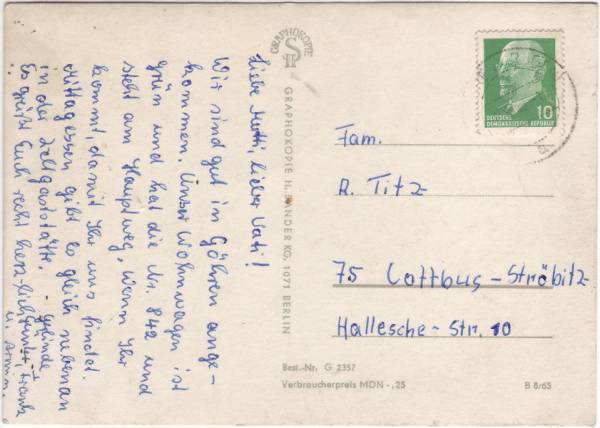 Liebe Mutti, lieber Vati!
Wir sind gut in Göhren ange-
kommen. Unser Wohnwagen ist
grün und hat die Nr. 842 und
steht am Hauptweg, wenn Ihr
kommt, damit Ihr uns findet.
Mittagessen gibt es gleich nebenan
in der Zeltgaststätte.
Es grüßt Euch recht herz-lich
GRAPHOKOPIE
GRAPHOKOPIE H. SANDER KG, 1071 BERLIN
DEUTSCHE
DEMOKRATISCHE REPUBLIK
10
Fam.
R. Titz
75 Cottbus-Ströbitz
Hallesche-Str. 10
Best.-Nr. G 2357
Verbraucherpreis MDN -,25
B 8/65